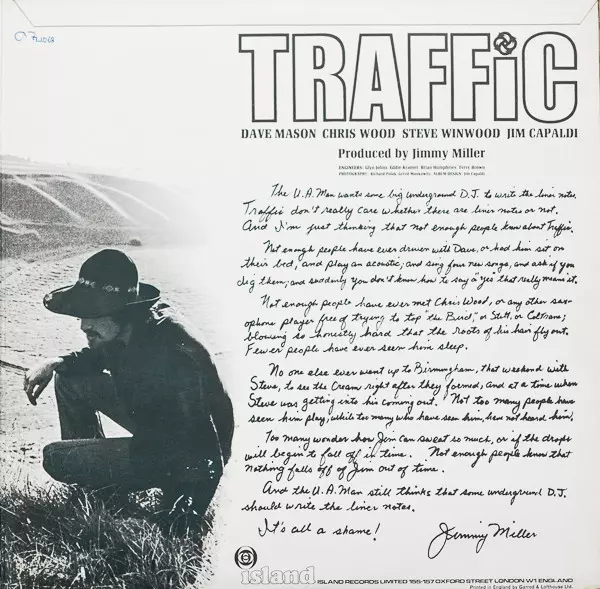 TRAFFiC
DAVE MASON CHRIS WOOD STEVE WINWOOD JIM CAPALDI
Produced by Jimmy Miller
ENGINEERS: Glyn Johns Eddie Kramer Brian Humphries Terry Brown
PHOTOGRAPHY: Richard Polak Gered Mankowitz ALBUM DESIGN: Jim Capaldi
The U.A. Man wants some big underground D.J. to write the liner notes.
Traffic don't really care whether there are liner notes or not.
And I'm just thinking that not enough people know about Traffic.
Not enough people have ever driven with Dave, or had him sit on
their bed, and play an acoustic; and sing four new songs, and ask if you
dig them; and suddenly you don't know how to say a "yes that really means it.
Not enough people have ever met Chris Wood, or any other sax-
ophone player free of trying to top "the Bird," or Stitt, or Coltrane;
blowing so honestly hard that the roots of his hair fly out.
Fewer people have ever seen him sleep.
No one else ever went up to Birmingham, that weekend with
Steve, to see the Cream right after they formed, and at a time when
Steve was getting into his coming out. Not too many people have
seen him play, while too many who have seen him, have not heard him.
Too many wonder how Jim can sweat so much, or if the drops
will begin to fall off in time. Not enough people know that
nothing falls off of Jim out of time.
And the U.A. Man still thinks that some underground D.J.
should write the liner notes.
It's all a shame!
Jimmy Miller
island
ISLAND RECORDS LIMITED 155-157 OXFORD STREET LONDON W1 ENGLAND
Printed in England by Garrod & Lofthouse Ltd.